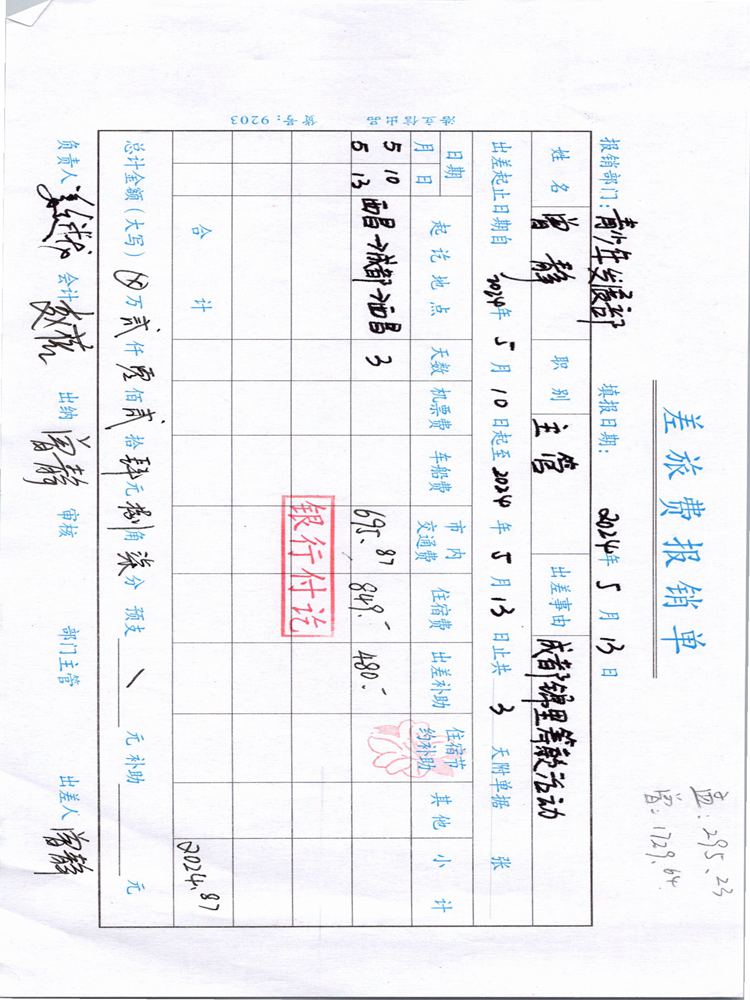 差旅费报销单
295.23
曾:1729.64
报销部门：青少年发展部 填报日期：2024年5月13日
姓名 曾静 职别 主管 出差事由 成都锦里筹款活动
出差起止日期自2024年5月10日起至2024年5月13日止共3天附单据 张
日期 月 日 起讫地点 天数 机票费 车船费 市内交通费 住宿费 出差补助 住宿节约补助 其他 小计
5 10
5 13 西昌→成都→西昌 3 695.87 849.- 480.-
银行付讫
合计 2024.87
总计金额（大写）⊗万贰仟零佰贰拾肆元捌角柒分 预支 \ 元 补助 元
负责人 会计 出纳 曾静 审核 部门主管 出差人 曾静
货号：9203